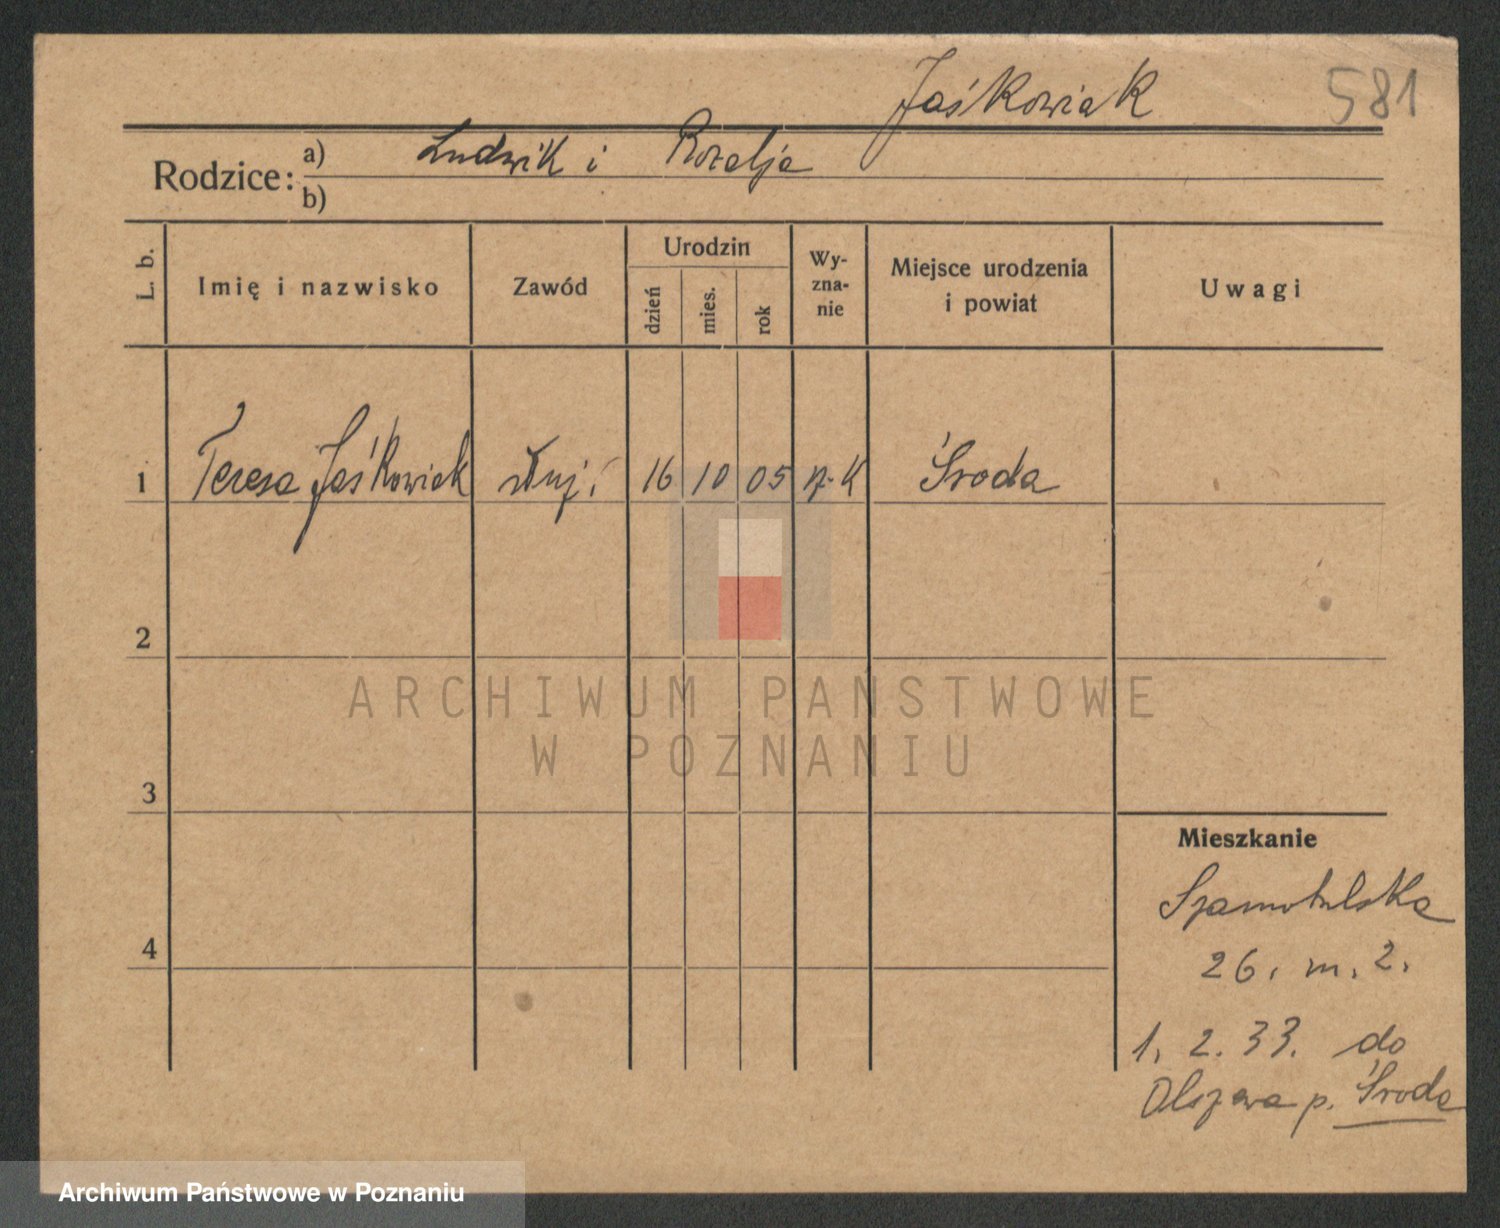 Jaśkowiak 581
Rodzice: a) Ludwik i Rozalja
b)
L. b.
Imię i nazwisko
Zawód
Urodzin
dzień
mies.
rok
Wy-
zna-
nie
Miejsce urodzenia
i powiat
Uwagi
1 Teresa Jaśkowiak służ. 16 10 05 r-k Środa
2
ARCHIWUM PAŃSTWOWE
W POZNANIU
3
Mieszkanie
Szamotulska
26. m. 2.
4
1. 2. 33. do
Olszewa p. Środa
Archiwum Państwowe w Poznaniu